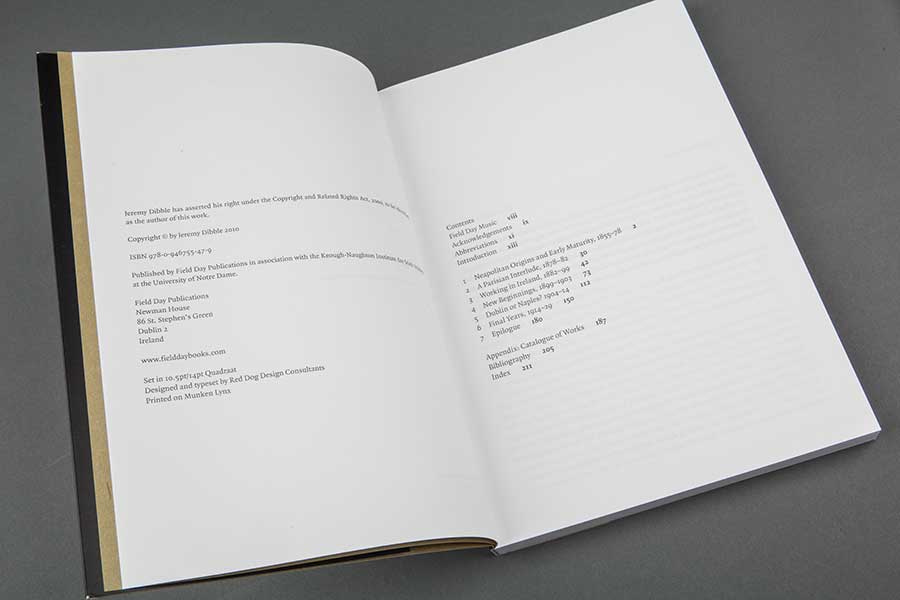 Jeremy Dibble has asserted his right under the Copyright and Related Rights Act, 2000, to be
as the author of this work.
Copyright © by Jeremy Dibble 2010
ISBN 978-0-946755-47-9
Published by Field Day Publications in association with the Keough-Naughton Institute for Irish Studies
at the University of Notre Dame.
Field Day Publications
Newman House
86 St. Stephen's Green
Dublin 2
Ireland
www.fielddaybooks.com
Set in 10.5pt/14pt Quadraat
Designed and typeset by Red Dog Design Consultants
Printed on Munken Lynx
Contents
Field Day Music viii
Acknowledgements ix
Abbreviations xi
Introduction xiii
1 Neapolitan Origins and Early Maturity, 1855–78 2
2 A Parisian Interlude, 1878–82 30
3 Working in Ireland, 1882–99 42
4 New Beginnings, 1899–1903 73
5 Dublin or Naples? 1904–14 112
6 Final Years, 1914–29 150
7 Epilogue 180
Appendix: Catalogue of Works 187
Bibliography 205
Index 211